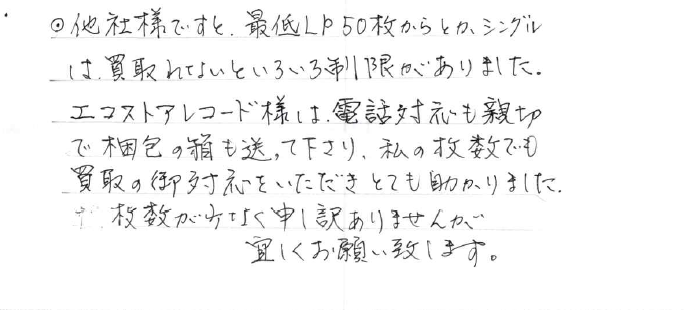 ⊙他社様ですと、最低LP50枚からとか、シングル
は、買取れないといろいろ制限がありました。
エコストアレコード様は、電話対応も親切
で梱包の箱も送って下さり、私の枚数でも
買取の御対応をいただきとても助かりました。
枚数が少なく申し訳ありませんが
宜しくお願い致します。